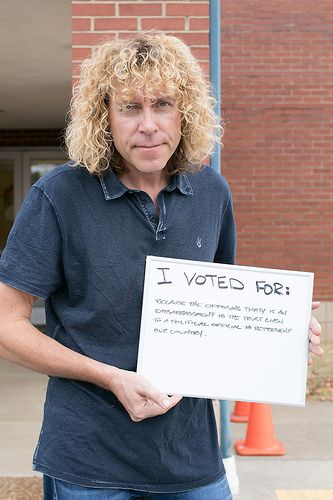 I VOTED FOR:
BECAUSE THE OPPOSING PARTY IS AN
EMBARRASSMENT TO THE TRUST GIVEN
TO A POLITICAL OFFICIAL TO REPRESENT
OUR COUNTRY.